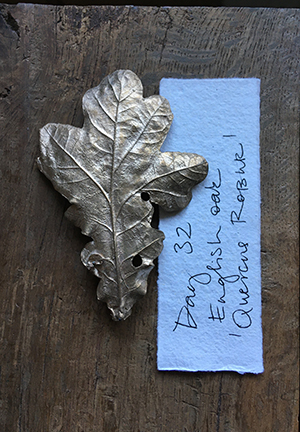 Day 32
English oak
'Quercus Robur'